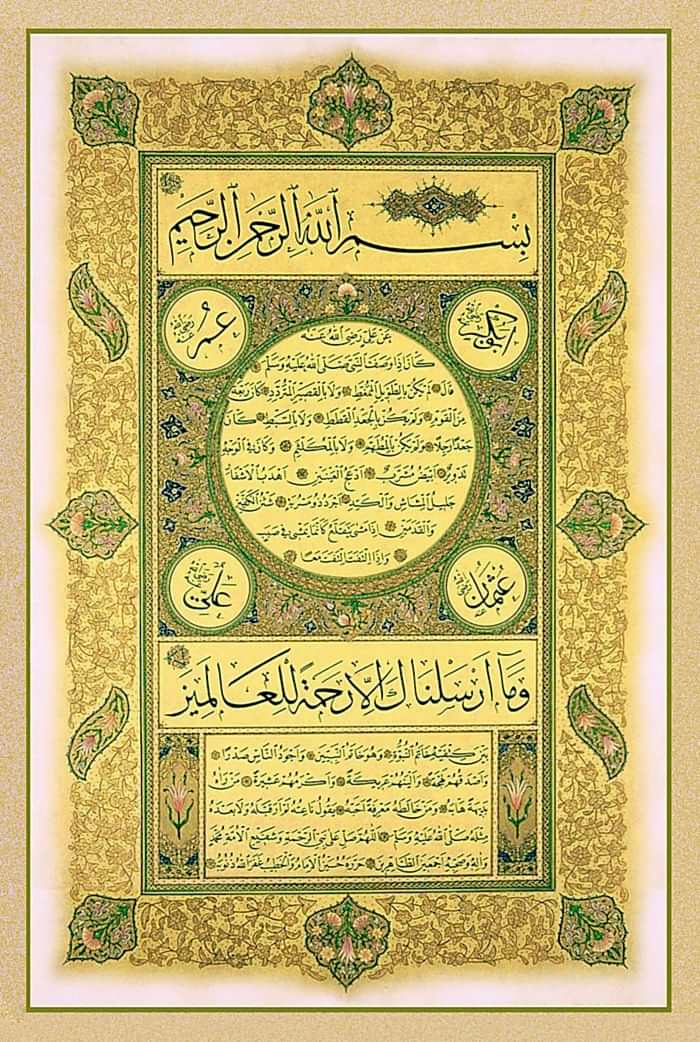 بِسْمِ اللّٰهِ الرَّحْمٰنِ الرَّحِيمِ
أبو بكر رضي الله عنه
عُمَرُ رضي الله عنه
عَنْ عَلِيٍّ رَضِيَ اللّٰهُ عَنْهُ
كَانَ إِذَا وَصَفَ النَّبِيَّ صَلَّى اللّٰهُ عَلَيْهِ وَسَلَّمَ
قَالَ لَمْ يَكُنْ بِالطَّوِيلِ الْمُمَّغِطِ وَلَا بِالْقَصِيرِ الْمُتَرَدِّدِ كَانَ رَبْعَةً
مِنَ الْقَوْمِ وَلَمْ يَكُنْ بِالْجَعْدِ الْقَطَطِ وَلَا بِالسَّبْطِ كَانَ
جَعْدًا رَجِلًا وَلَمْ يَكُنْ بِالْمُطَهَّمِ وَلَا بِالْمُكَلْثَمِ وَكَانَ فِي الْوَجْهِ
تَدْوِيرٌ أَبْيَضُ مُشْرَبٌ أَدْعَجُ الْعَيْنَيْنِ أَهْدَبُ الْأَشْفَارِ
جَلِيلُ الْمُشَاشِ وَالْكَتَدِ أَجْرَدُ ذُو مَسْرُبَةٍ شَثْنُ الْكَفَّيْنِ
وَالْقَدَمَيْنِ إِذَا مَشَى يَتَقَلَّعُ كَأَنَّمَا يَمْشِي فِي صَبَبٍ
وَإِذَا الْتَفَتَ الْتَفَتَ مَعًا
عُثْمَانُ رضي الله عنه
عَلِيّ رضي الله عنه
وَمَا أَرْسَلْنَاكَ إِلَّا رَحْمَةً لِلْعَالَمِينَ
بَيْنَ كَتِفَيْهِ خَاتَمُ النُّبُوَّةِ وَهُوَ خَاتَمُ النَّبِيِّينَ وَأَجْوَدُ النَّاسِ صَدْرًا
وَأَصْدَقُهُمْ لَهْجَةً وَأَلْيَنُهُمْ عَرِيكَةً وَأَكْرَمُهُمْ عَشِيرَةً مَنْ رَآهُ
بَدِيهَةً هَابَهُ وَمَنْ خَالَطَهُ مَعْرِفَةً أَحَبَّهُ يَقُولُ نَاعِتُهُ لَمْ أَرَ قَبْلَهُ وَلَا بَعْدَهُ
مِثْلَهُ صَلَّى اللّٰهُ عَلَيْهِ وَسَلَّمَ اللّٰهُمَّ صَلِّ عَلَى نَبِيِّ الرَّحْمَةِ وَشَفِيعِ الْأُمَّةِ مُحَمَّدٍ
وَآلِهِ وَصَحْبِهِ أَجْمَعِينَ الطَّاهِرِينَ حَرَّرَهُ حُسَيْنُ الْإِمَامُ وَالْخَطِيبُ غَفَرَ اللّٰهُ ذُنُوبَهُ